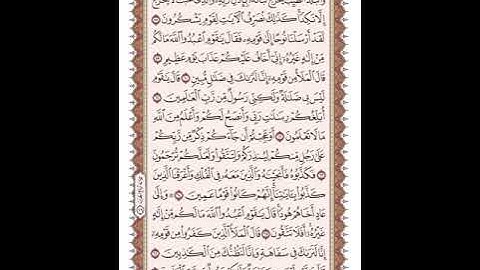 وَٱلۡبَلَدُ ٱلطَّيِّبُ يَخۡرُجُ نَبَاتُهُۥ بِإِذۡنِ رَبِّهِۦۖ وَٱلَّذِي خَبُثَ لَا يَخۡرُجُ
إِلَّا نَكِدٗاۚ كَذَٰلِكَ نُصَرِّفُ ٱلۡأٓيَٰتِ لِقَوۡمٖ يَشۡكُرُونَ ٥٨
لَقَدۡ أَرۡسَلۡنَا نُوحًا إِلَىٰ قَوۡمِهِۦ فَقَالَ يَٰقَوۡمِ ٱعۡبُدُواْ ٱللَّهَ مَا لَكُم
مِّنۡ إِلَٰهٍ غَيۡرُهُۥٓ إِنِّيٓ أَخَافُ عَلَيۡكُمۡ عَذَابَ يَوۡمٍ عَظِيمٖ ٥٩
قَالَ ٱلۡمَلَأُ مِن قَوۡمِهِۦٓ إِنَّا لَنَرَىٰكَ فِي ضَلَٰلٖ مُّبِينٖ ٦٠ قَالَ يَٰقَوۡمِ
لَيۡسَ بِي ضَلَٰلَةٞ وَلَٰكِنِّي رَسُولٞ مِّن رَّبِّ ٱلۡعَٰلَمِينَ ٦١
أُبَلِّغُكُمۡ رِسَٰلَٰتِ رَبِّي وَأَنصَحُ لَكُمۡ وَأَعۡلَمُ مِنَ ٱللَّهِ
مَا لَا تَعۡلَمُونَ ٦٢ أَوَعَجِبۡتُمۡ أَن جَآءَكُمۡ ذِكۡرٞ مِّن رَّبِّكُمۡ
عَلَىٰ رَجُلٖ مِّنكُمۡ لِيُنذِرَكُمۡ وَلِتَتَّقُواْ وَلَعَلَّكُمۡ تُرۡحَمُونَ ٦٣
فَكَذَّبُوهُ فَأَنجَيۡنَٰهُ وَٱلَّذِينَ مَعَهُۥ فِي ٱلۡفُلۡكِ وَأَغۡرَقۡنَا ٱلَّذِينَ
كَذَّبُواْ بِـَٔايَٰتِنَآۚ إِنَّهُمۡ كَانُواْ قَوۡمًا عَمِينَ ٦٤ ۞ وَإِلَىٰ
عَادٍ أَخَاهُمۡ هُودٗاۚ قَالَ يَٰقَوۡمِ ٱعۡبُدُواْ ٱللَّهَ مَا لَكُم مِّنۡ إِلَٰهٍ
غَيۡرُهُۥٓۚ أَفَلَا تَتَّقُونَ ٦٥ قَالَ ٱلۡمَلَأُ ٱلَّذِينَ كَفَرُواْ مِن قَوۡمِهِۦٓ
إِنَّا لَنَرَىٰكَ فِي سَفَاهَةٖ وَإِنَّا لَنَظُنُّكَ مِنَ ٱلۡكَٰذِبِينَ ٦٦